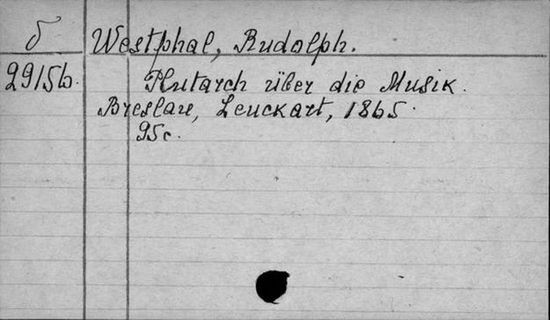 δ Westphal, Rudolph.
2915b. Plutarch über die Musik.
Breslau, Leuckart, 1865.
95c.